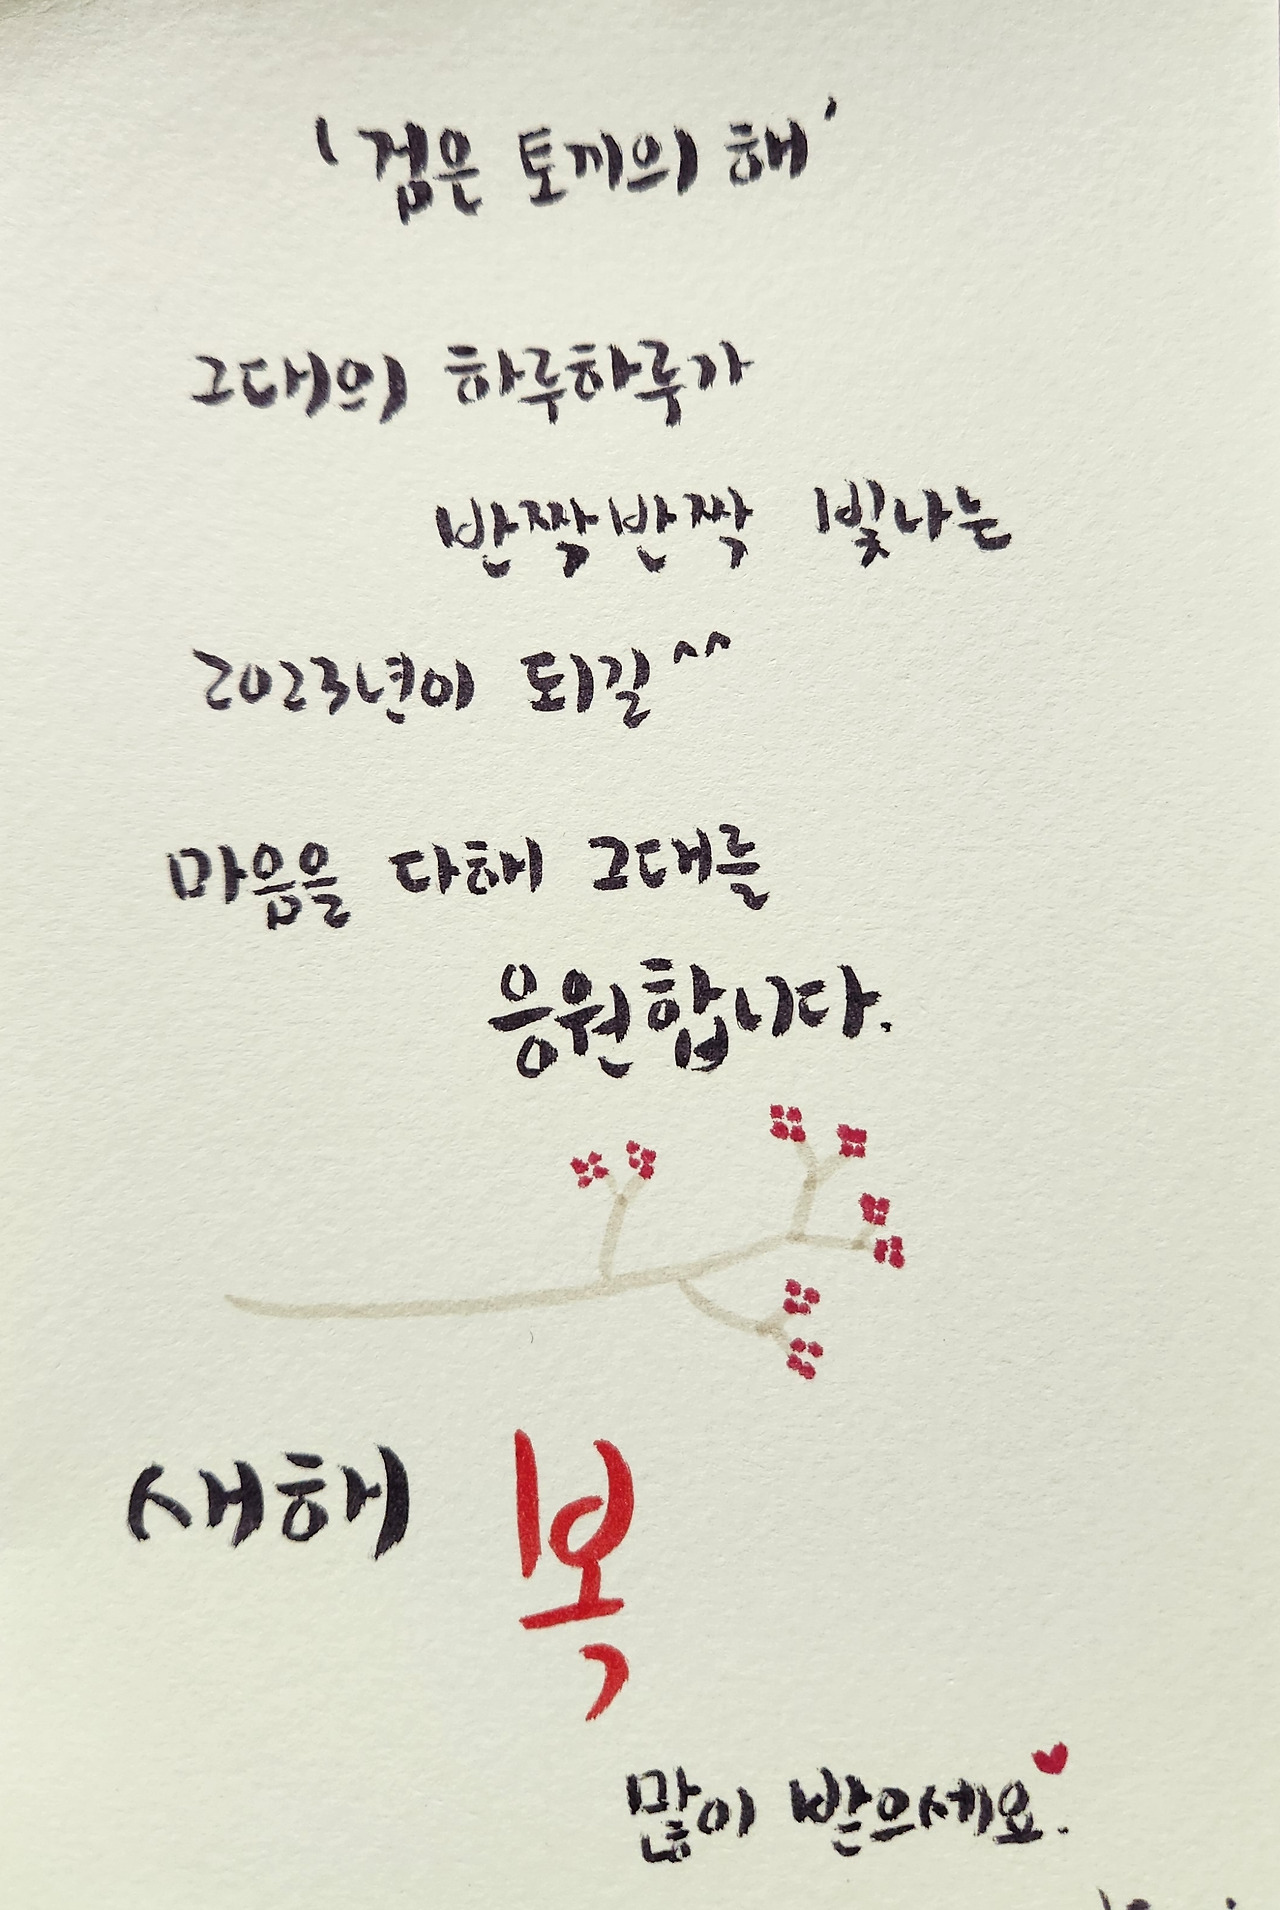 '검은 토끼의 해'
그대의 하루하루가
반짝반짝 빛나는
2023년이 되길^^
마음을 다해 그대를
응원합니다.
새해 복
많이 받으세요.